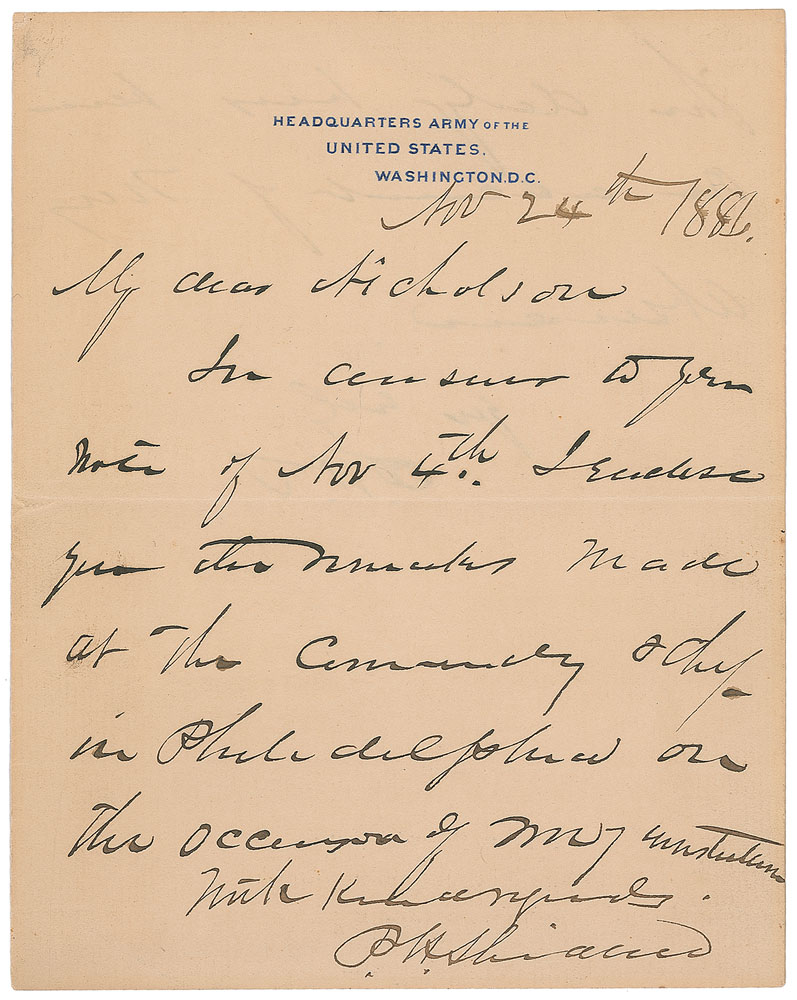 HEADQUARTERS ARMY OF THE
UNITED STATES.
WASHINGTON. D.C.
Nov 24th 1886.
My dear Nicholson
In answer to your
note of Nov 4th. I enclose
you the remarks made
at the Commandery
in Philadelphia on
the occasion of my
With kind regards.
P.H. Sheridan